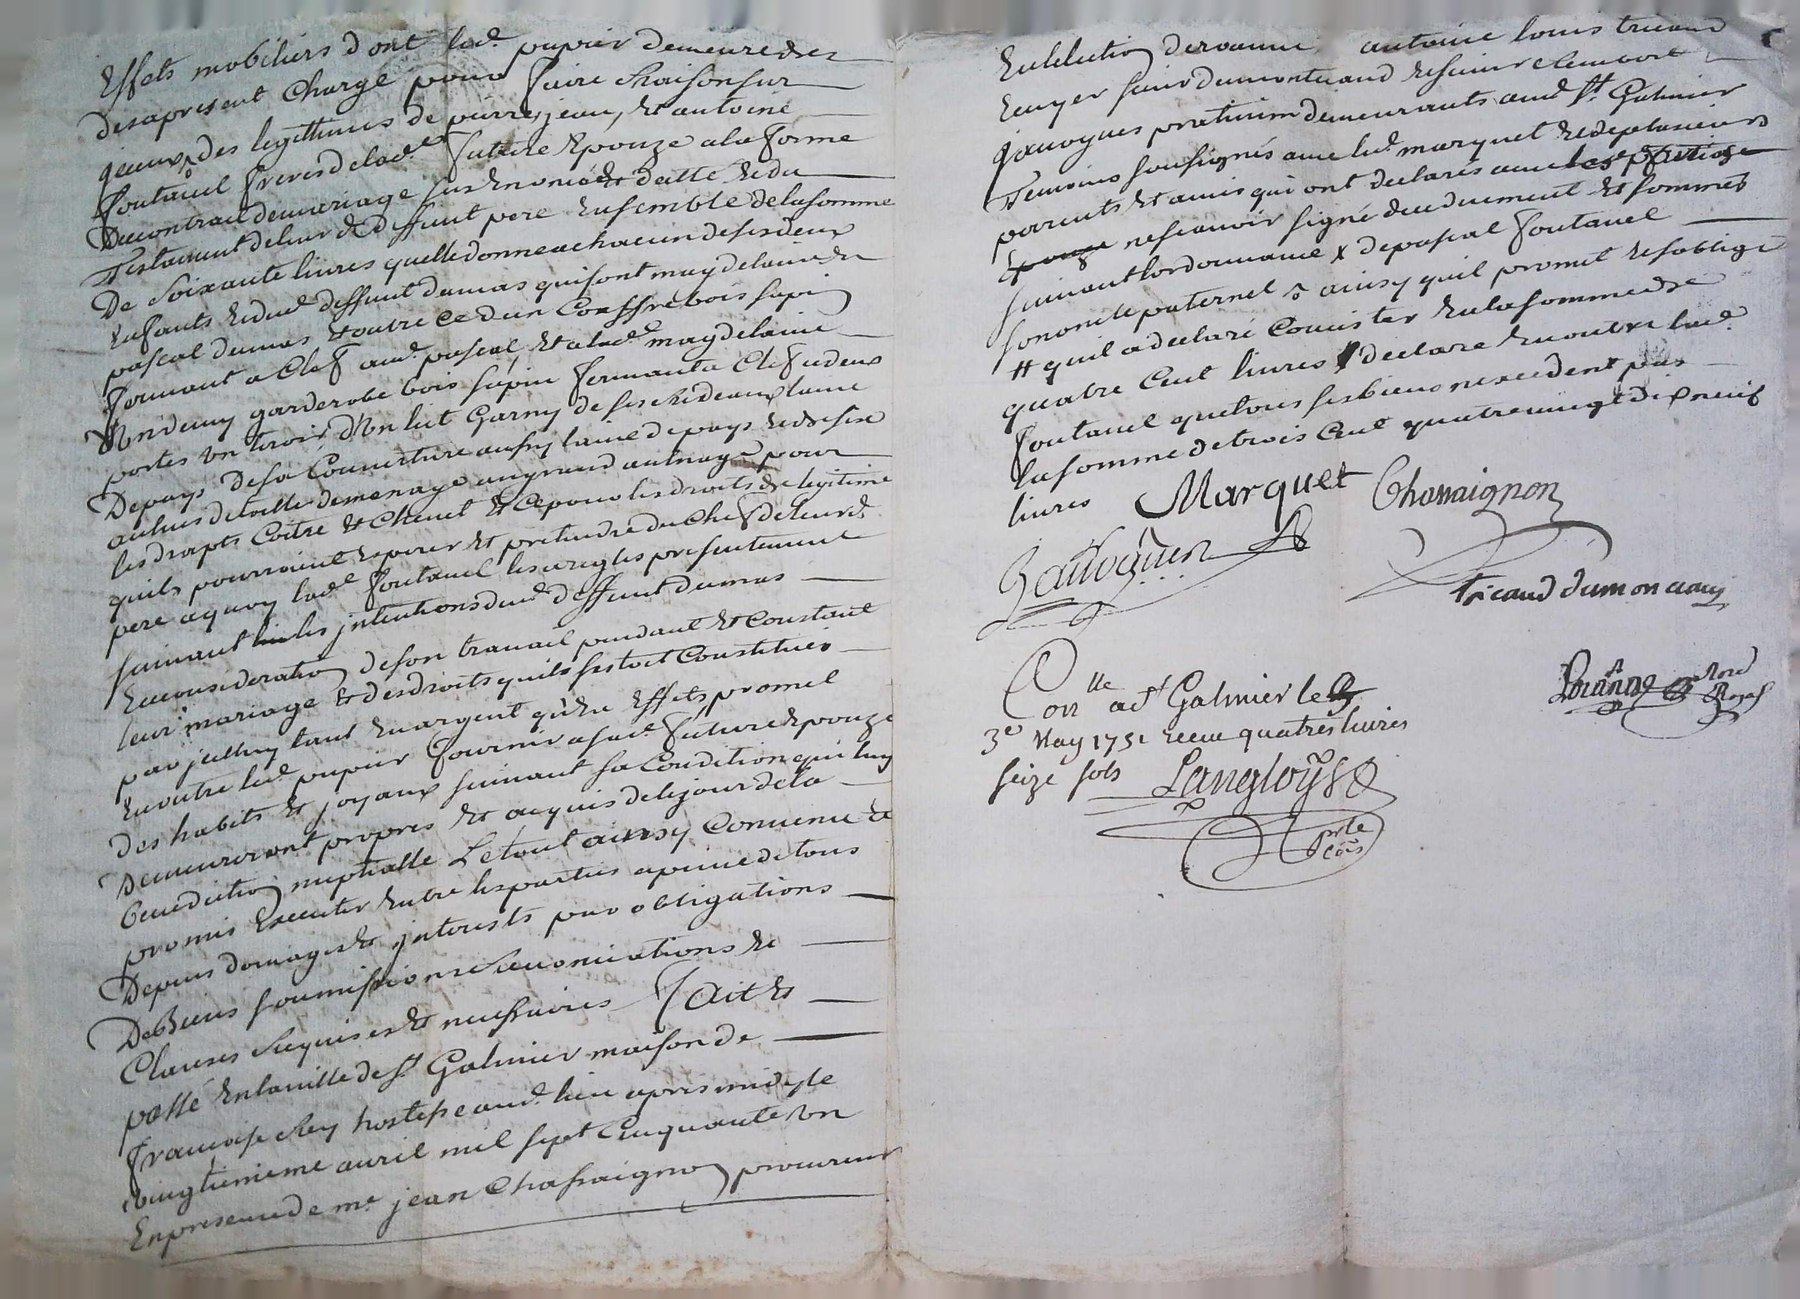 Effets mobiliers dont lad.e papier demeure des
desapresent chargé pour faire raison sur
iceux des legitimes de pierre, jean, et antoine
fontanel freres delad.e future Epouze ala forme
Ducontrat demariage susenoncé et datté et du
Testament deleurd. deffunt pere Ensemble delasomme
De soixante livres quelle donne achacun desesdeux
Enfants et dud. deffunt dumas quisont magdelaine et
pascal dumas, et outre ce d'un Coffre bois sapin
fermant a Clef aud. pascal, et alad.e magdelaine
Un demy garderobe bois sapin fermant a Clef adeux
portes un tiroir, d'un lit Garny de ses rideaux laine
Depays desa Couverture aussy laine depays et de six
aulnes detoille demenage augrand aulnage pour
les draps Coitre et Chevet et ce pour les droits de legitime
quils pourroient esperer et pretendre du Chef deleurd.
pere aquoy lad.e fontanel les a regles presentement
suivant les jntentions dud. deffunt dumas
Enconsideration deson travail pendant et Constant
leur mariage et des droits quils sestoit Constitues
par jcelluy tant En argent qu'En Effets, promet
En outre led. papier fournir a sad. future Epouze
des habits et joyaux suivant sa Condition qui luy
Demeureront propres et acquis des le jour dela
benediction nuptialle Letout ainsy Convenu et
promis Executer Entre les parties apeine detous
Depens domages et jnterests par obligations
De Biens soumissions Renonciations et
Clauses Requises et necessaires Fait et
passé En la ville de S.t Galmier maison de
françoise Rey hostesse aud. lieu apres midy le
vingtunieme avril mil sept Cinquante Un
En presence de m.e jean Chassaignon procureur
En Election deroanne, antoine louis tricaud
Ecuyer sieur dumontceaud et sieur Clement
gauoyuer praticien demeurants aud. S.t Galmier
Temoins soussignés avec led. marquet et de plusieurs
parents et amis qui ont declarés avec les parties
nescavoir signé deceduement et sommés
suivant lordonnance x depascal fontanel
son oncle paternel ainsy quil promet et soblige
# quil a declaré Consister En la somme de
quatre Cent livres declare En outre lad.e
fontanel que tous ses biens n'excedent pas
la somme de trois Cent quatre vingt dixneuf
livres Marquet Chassaignon
Gauoyuer
Tricaud dumonceau
Con.lle a S.t Galmier le
3.e May 1751 receu quatres livres
seize sols Langloys